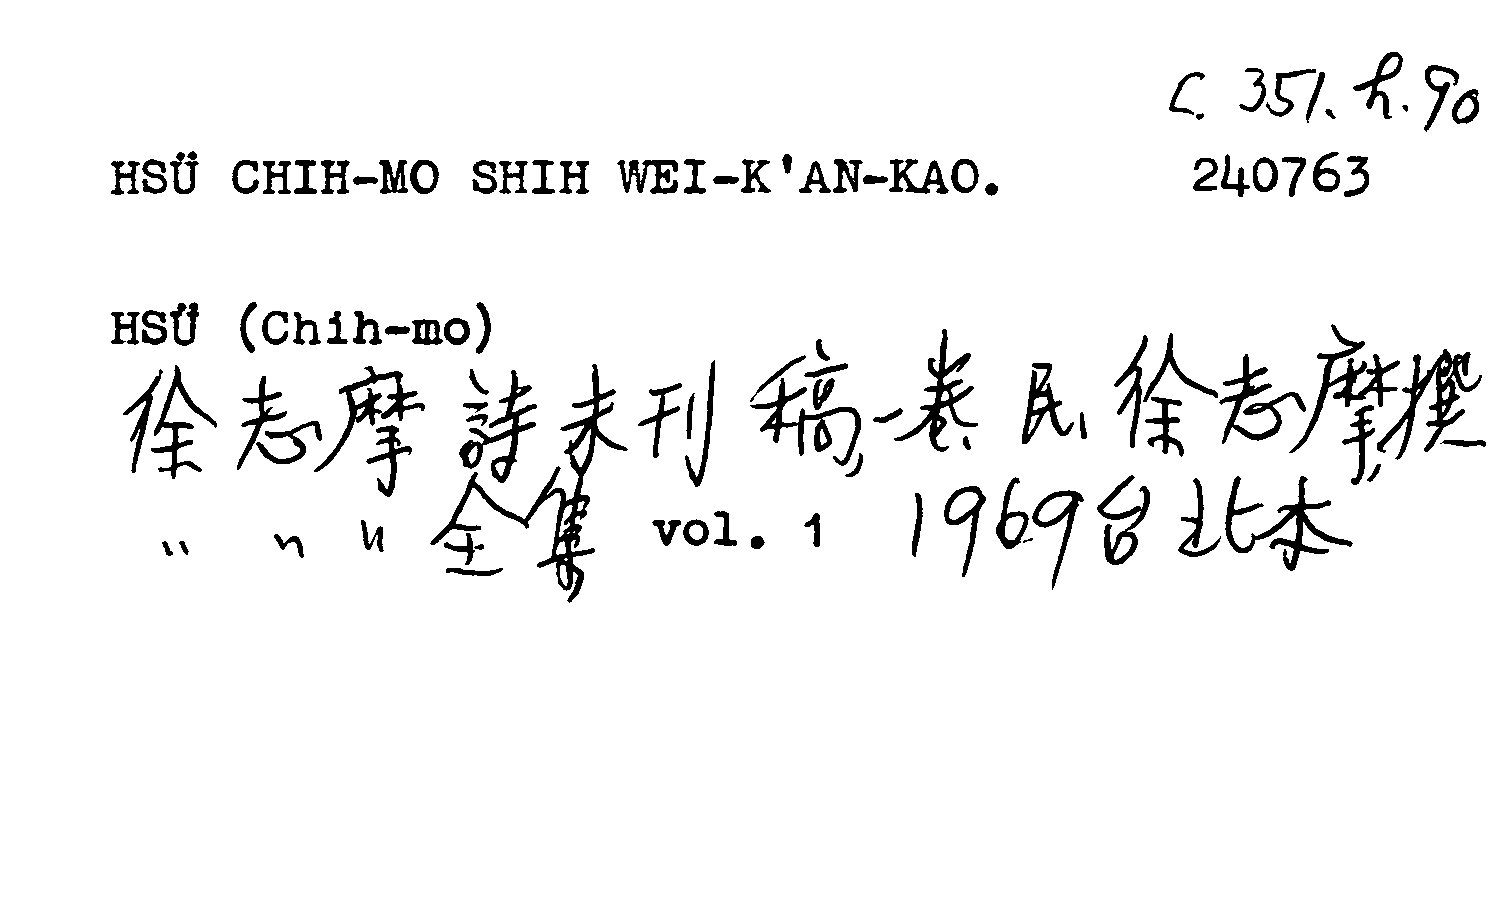 C. 351. h. 90
HSÜ CHIH-MO SHIH WEI-K'AN-KAO. 240763
HSÜ (Chih-mo)
徐志摩詩未刊稿,一卷 民,徐志摩,撰
〃 〃 〃 全集 vol. 1 1969台北本